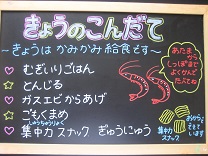 きょうのこんだて
～きょうは かみかみ 給食です～
♡ むぎいりごはん
☆ とんじる
♡ ガスエビからあげ
☆ ごもくまめ
しゅうちゅうりょく
♡ 集中力 スナック ぎゅうにゅう
あたま から しっぽまで よくかんで たべてね
集中力 スナック